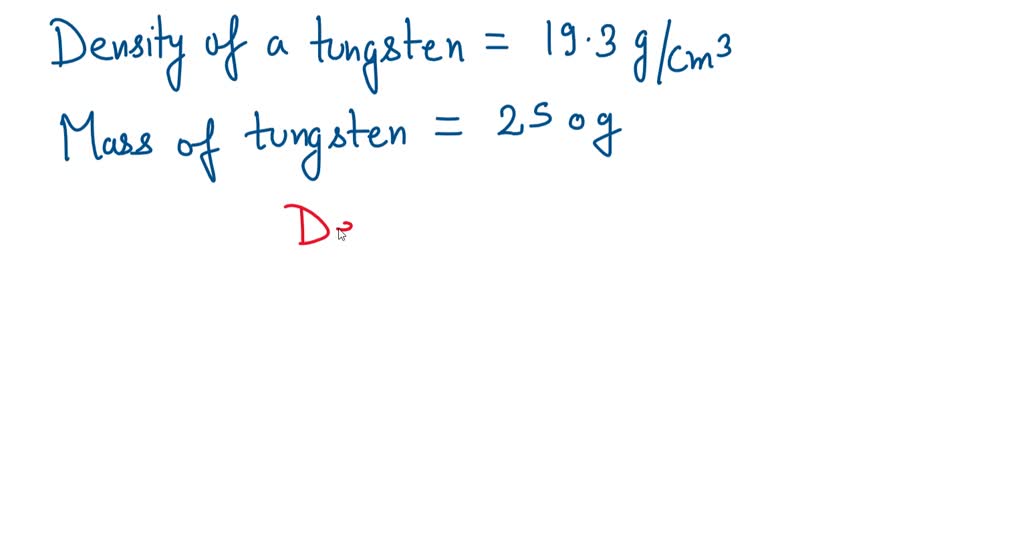 Density of a tungsten = 19.3 g/cm³
Mass of tungsten = 250g
D